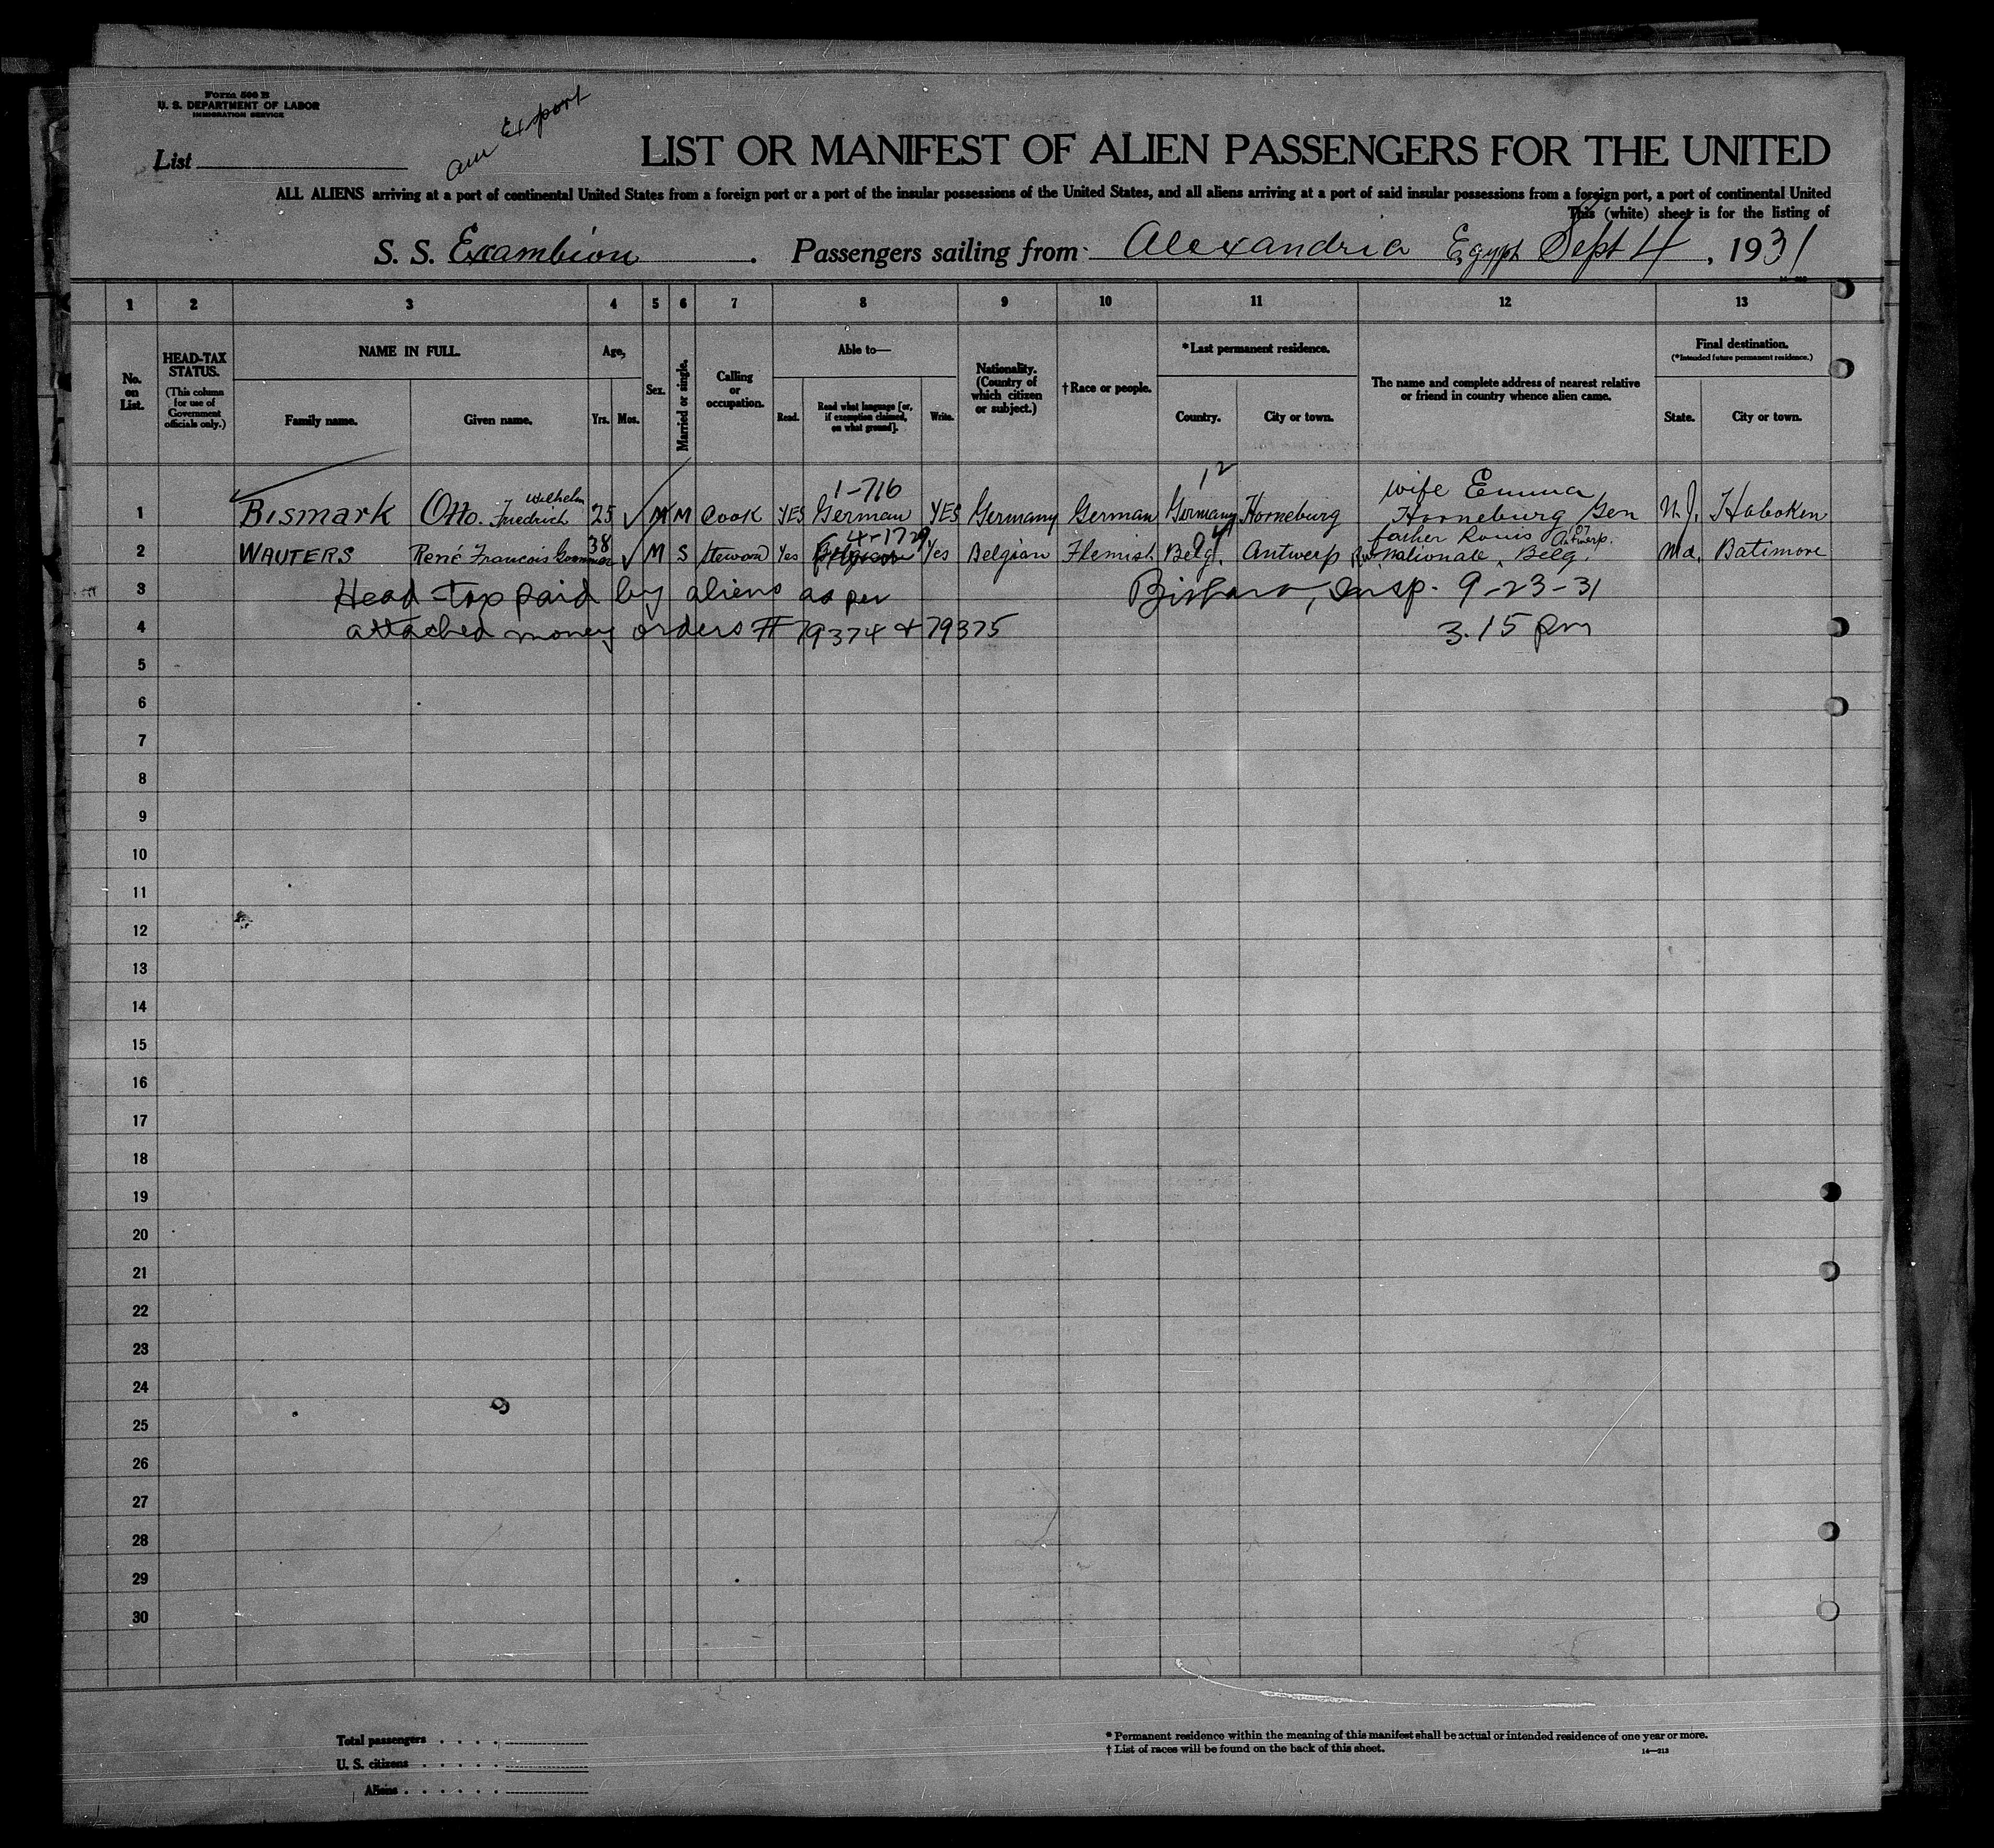 Form 500 B
U. S. DEPARTMENT OF LABOR
IMMIGRATION SERVICE
List
am Export
LIST OR MANIFEST OF ALIEN PASSENGERS FOR THE UNITED
ALL ALIENS arriving at a port of continental United States from a foreign port or a port of the insular possessions of the United States, and all aliens arriving at a port of said insular possessions from a foreign port, a port of continental United
This (white) sheet is for the listing of
S. S. Exambion. Passengers sailing from Alexandria Egypt Sept 4, 1931
1 2 3 4 5 6 7 8 9 10 11 12 13
No. on List.
HEAD-TAX STATUS.
(This column for use of Government officials only.)
NAME IN FULL.
Family name. Given name.
Age,
Yrs. Mos.
Sex.
Married or single.
Calling or occupation.
Able to—
Read. Read what language [or, if exemption claimed, on what ground]. Write.
Nationality. (Country of which citizen or subject.)
†Race or people.
*Last permanent residence.
Country. City or town.
The name and complete address of nearest relative or friend in country whence alien came.
Final destination.
(*Intended future permanent residence.)
State. City or town.
1-716 12 wife Emma
1 Bismark Otto Wilhelm Friedrich 25 ✓ M M Cook YES German YES Germany German Germany Horneburg Horneburg Gen N.J. Hoboken
4-1729 father Louis Antwerp.
2 WAUTERS René Francois 38 ✓ M S steward Yes Yes Belgian Flemish Belg. Antwerp nationale, Belg. Md. Batimore
3 Head-tax paid by aliens as per Insp. 9-23-31
4 attached money orders # 79374 & 79375 3.15 pm
5
6
7
8
9
10
11
12
13
14
15
16
17
18
19
20
21
22
23
24
25
26
27
28
29
30
Total passengers
U. S. citizens
Aliens
* Permanent residence within the meaning of this manifest shall be actual or intended residence of one year or more.
† List of races will be found on the back of this sheet.
14—213